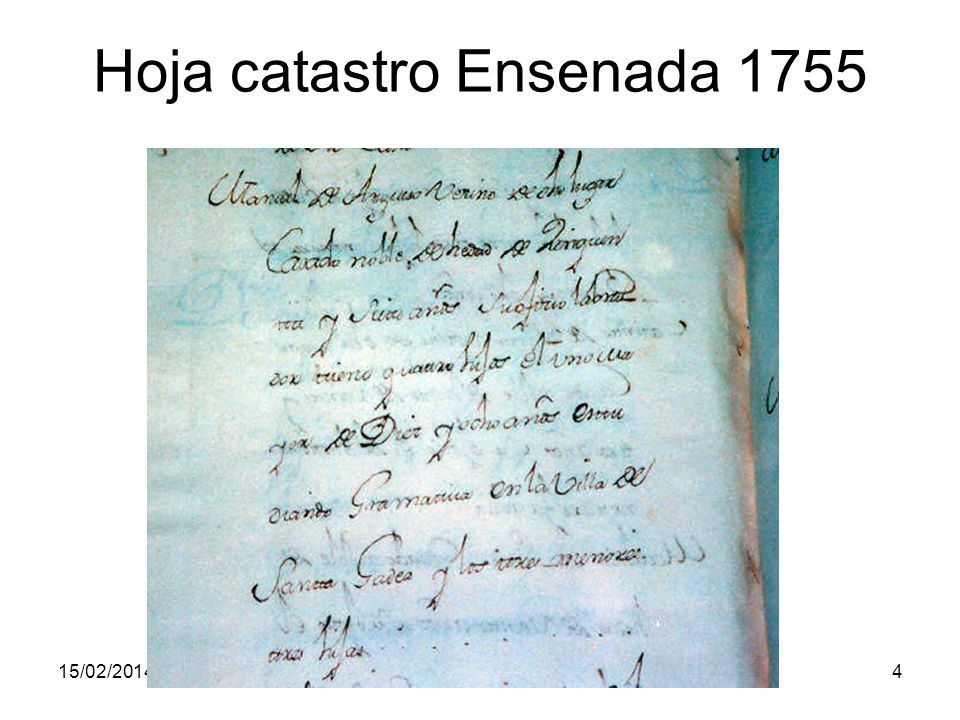 Hoja catastro Ensenada 1755
Manuel de Argueso Vecino de dho lugar
Casado noble, de hedad de Zinquen
tta y Siete años Su ofizio labra
dor tiene quatro hijos el uno ma
yor de Diez y ocho años estu
diando Gramatica en la Villa de
Santta Gadea y los ttres menores
ttres hijas
15/02/2014
4